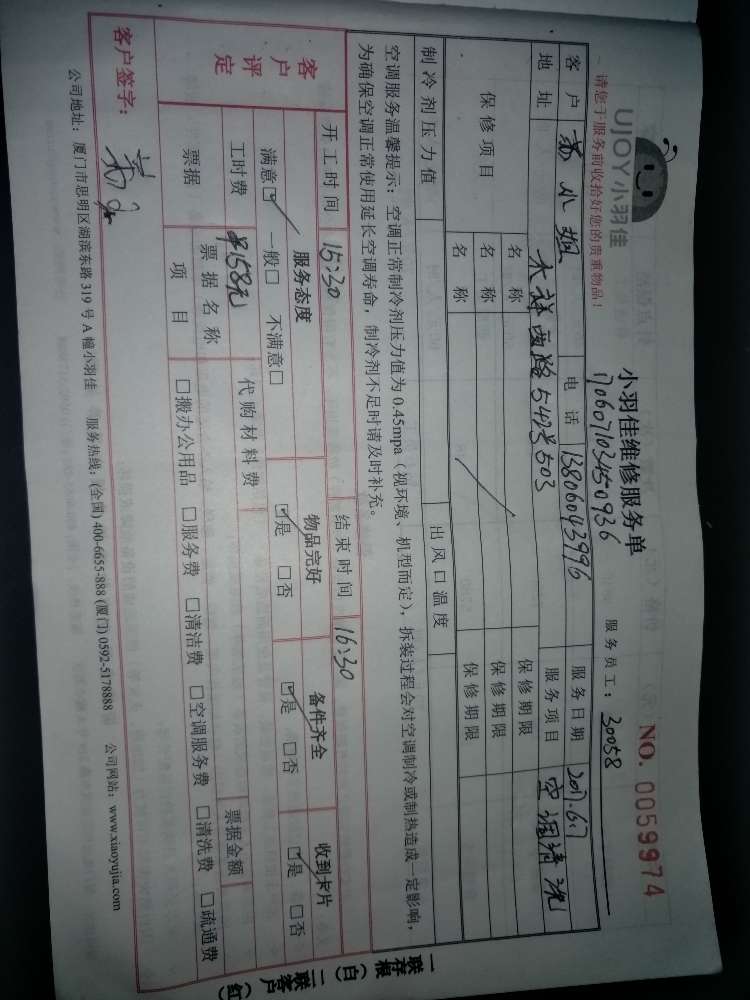 UJOY小羽佳
小羽佳维修服务单
NO. 0059974
170607103450936
服务员工：30058
请您于服务前收拾好您的贵重物品！
客户 苏小姐 电话 13806043996 服务日期 2017.6.7
地址 禾祥西路54号503 服务项目 空调清洗
保修项目 名称 保修期限
名称 保修期限
名称 保修期限
制冷剂压力值 出风口温度
空调服务温馨提示：空调正常制冷剂压力值为0.45mpa（视环境、机型而定），拆装过程会对空调制冷或制热造成一定影响，
为确保空调正常使用延长空调寿命，制冷剂不足时请及时补充。
开工时间 15:30 结束时间 16:30
客户评定 服务态度 物品完好 备件齐全 收到卡片
满意□ 一般□ 不满意□ □是 □否 □是 □否 □是 □否
工时费 ¥158元 代购材料费 票据金额
票据 票据名称
项目 □搬办公用品 □服务费 □清洁费 □空调服务费 □清洗费 □疏通费
客户签字：
公司地址：厦门市思明区湖滨东路319号A幢小羽佳 服务热线：(全国) 400-6655-888 (厦门) 0592-5178888 公司网站：www.xiaoyujia.com
一联存根（白）二联客户（红）